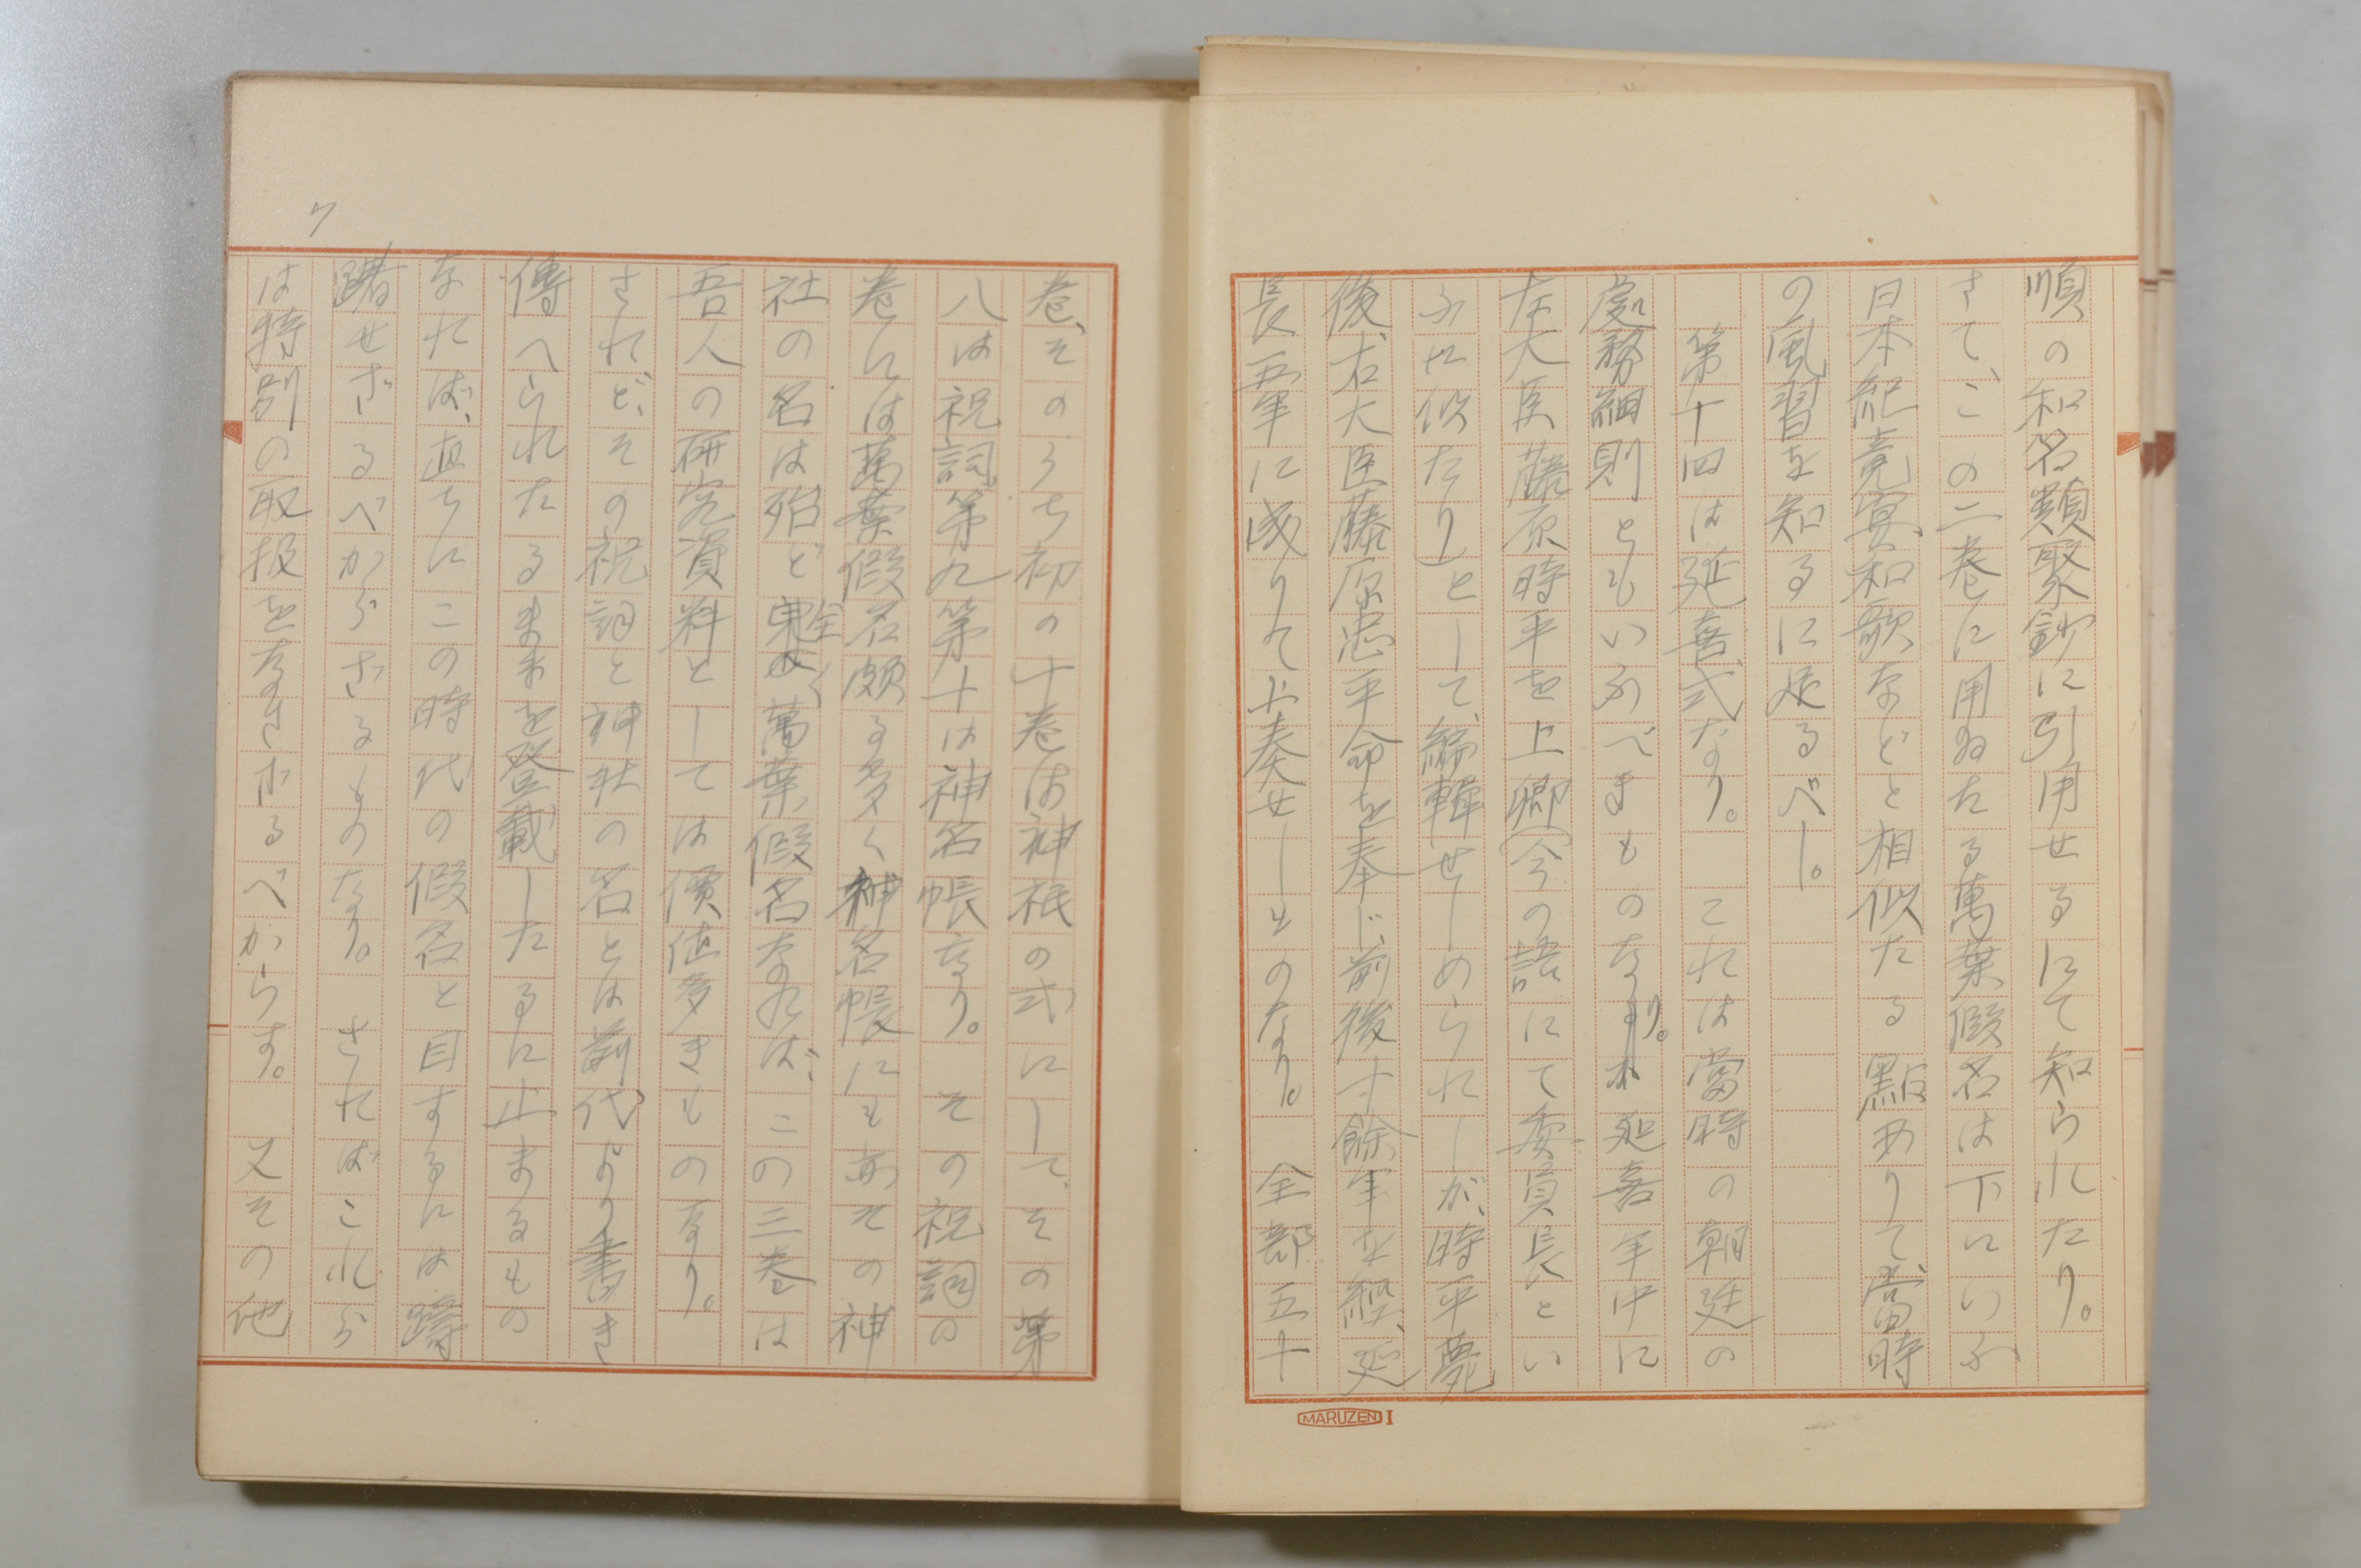 順の和名類聚鈔に引用せるにて知られたり。
さて、この二巻に用ゐたる萬葉假名は下にいふ
日本紀竟宴和歌などと相似たる點ありて、當時
の風習を知るに足るべし。
第十四は延喜式なり。 これは當時の朝廷の
處務細則ともいふべきものなり。延喜年中に
左大臣藤原時平を上卿(今の語にて委員長とい
ふに似たり)として、編輯せしめられしが、時平薨
後、右大臣藤原忠平命を奉じ、前後十餘年を經、延
長五年に成りて上奏せしものなり。 全部五十
巻、そのうち初の十巻は神祇の式にして、その第
八は祝詞、第九第十は神名帳なり。 その祝詞の
巻には萬葉假名頗る多く神名帳にもあ その神
社の名は殆ど全く萬葉假名なれば、この三巻は
吾人の研究資料としては價値多きものなり。
されど、その祝詞と神社の名とは前代より書き
傳へられたるままを登載したるに止まるもの
なれば、直ちにこの時代の假名と目するには躊
躇せざるべからざるものなり。 さればこれら
は特別の取扱をなさざるべからず。 又その他
7
MARUZEN I